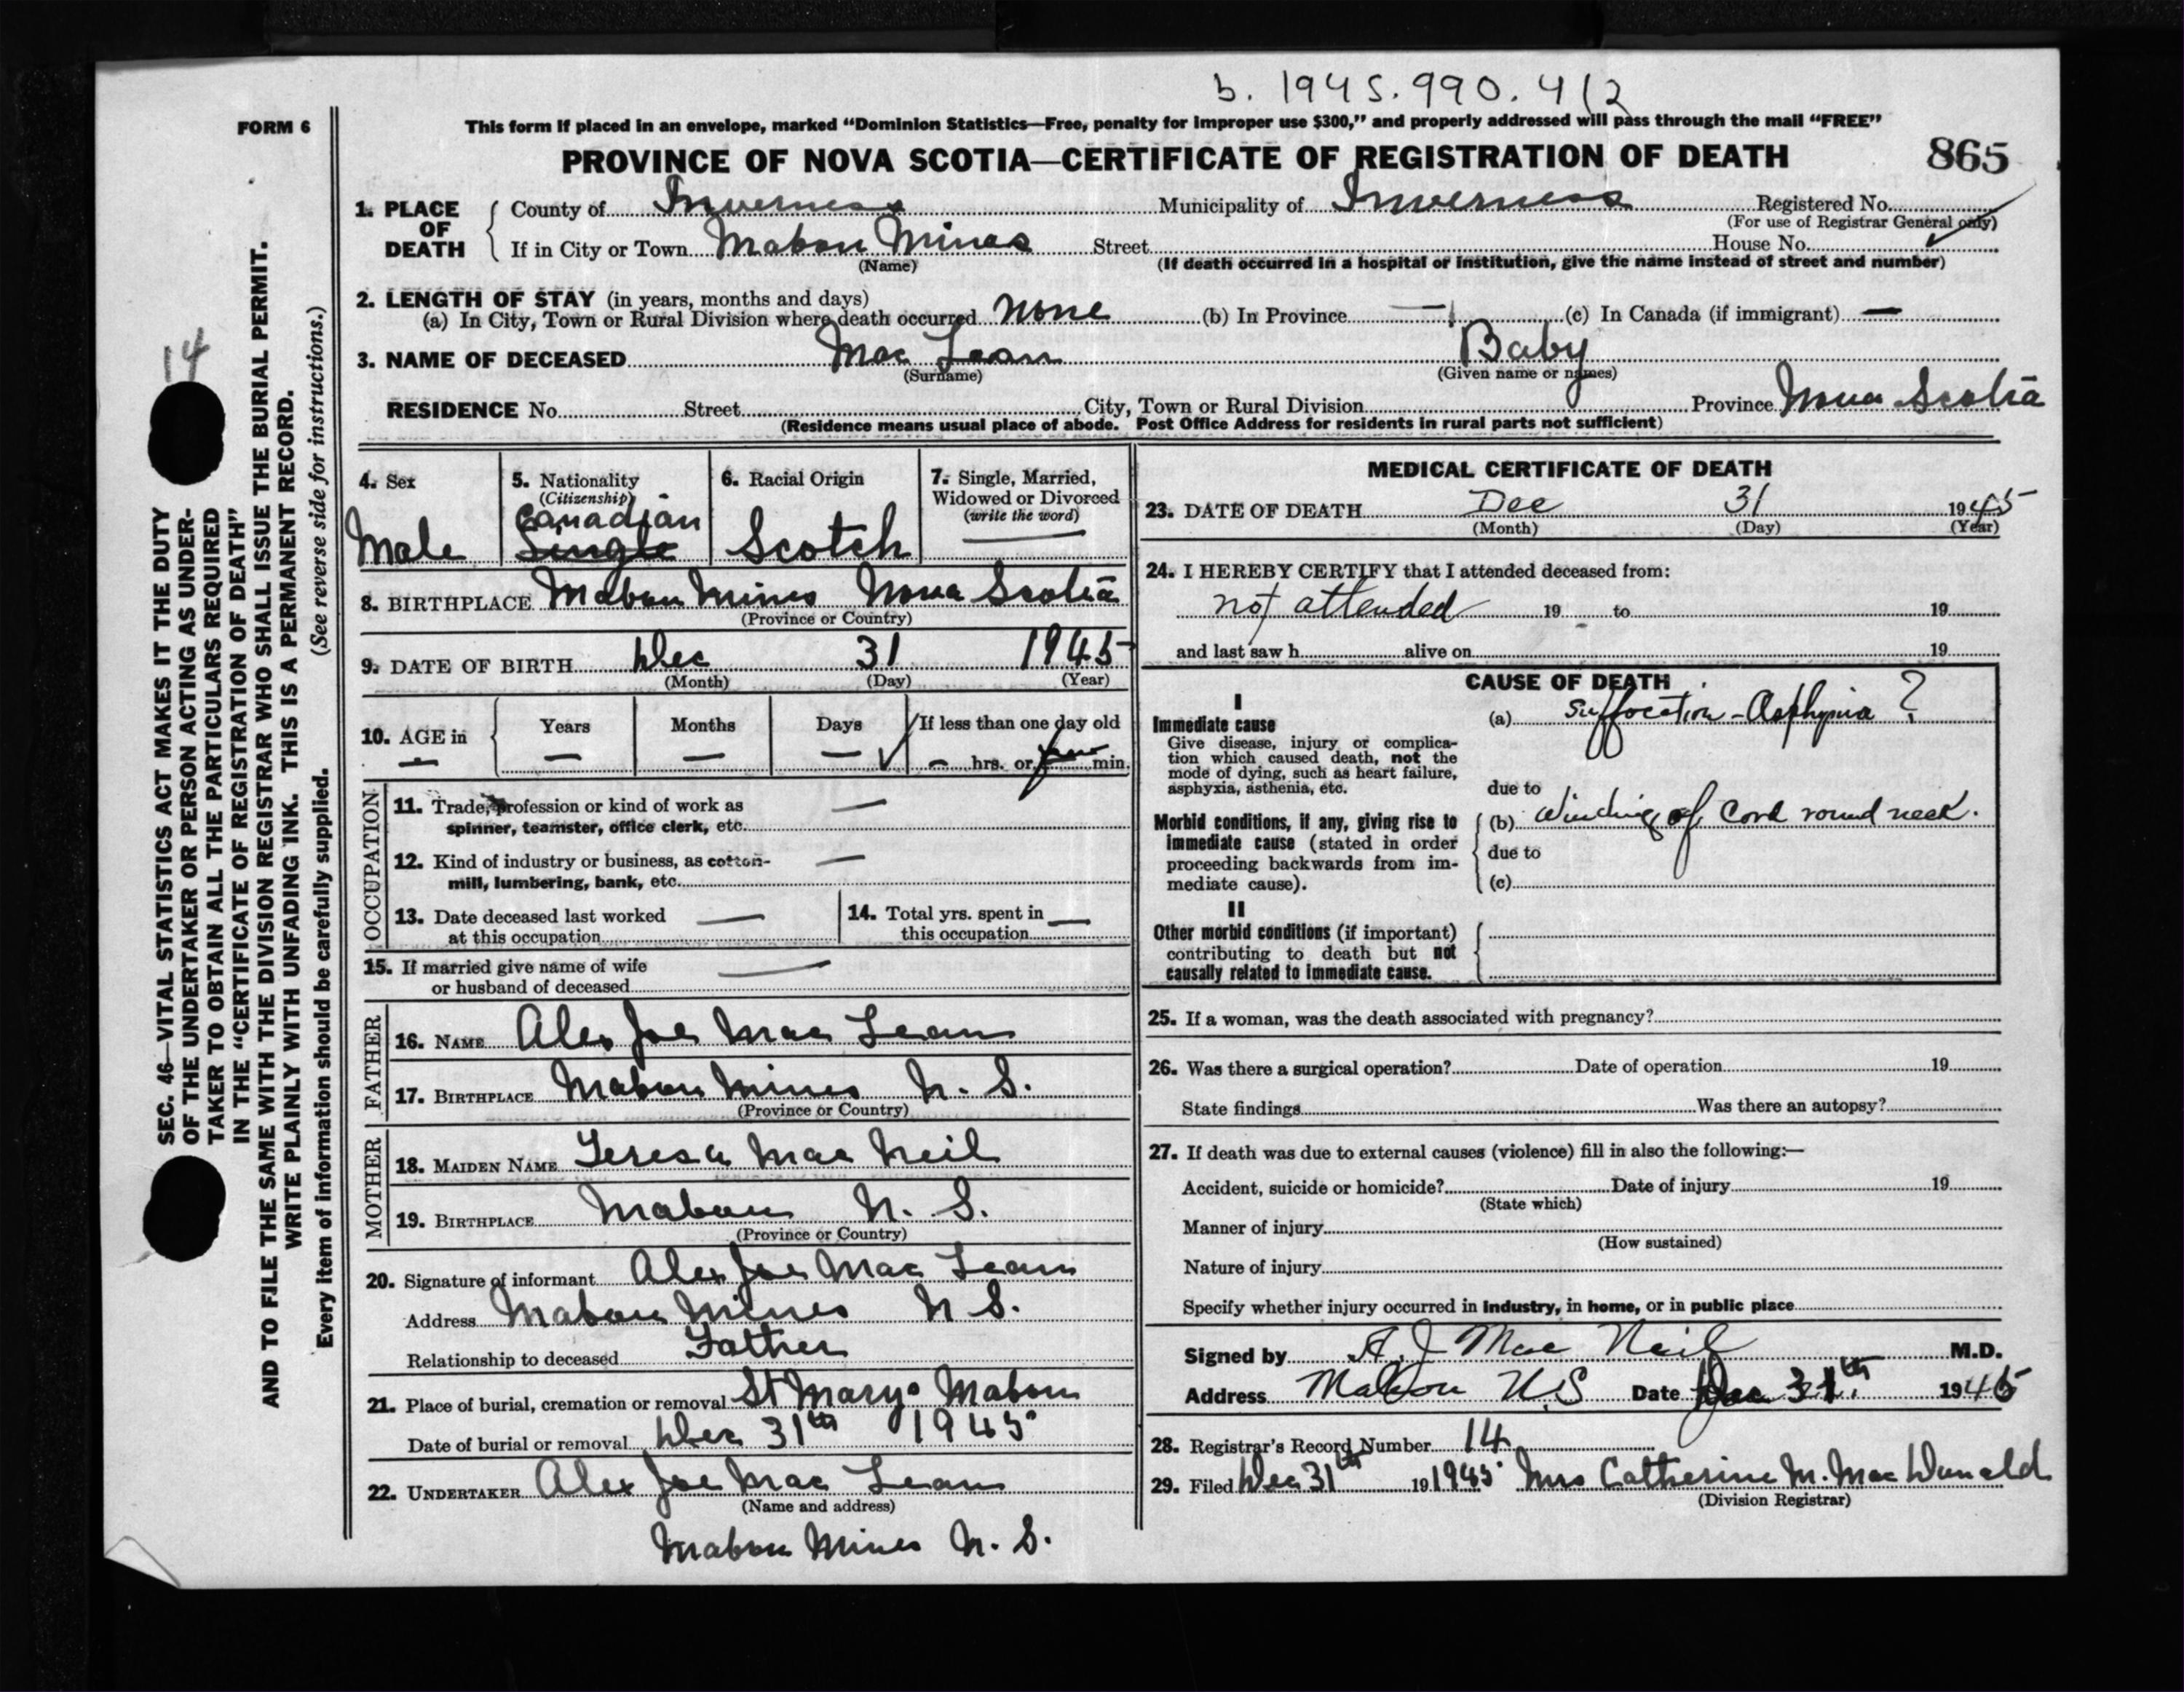 b. 1945.990.412
FORM 6
This form if placed in an envelope, marked “Dominion Statistics—Free, penalty for improper use $300,” and properly addressed will pass through the mail “FREE”
PROVINCE OF NOVA SCOTIA—CERTIFICATE OF REGISTRATION OF DEATH 865
1. PLACE OF DEATH
County of Inverness Municipality of Inverness Registered No.
(For use of Registrar General only)
If in City or Town Mabou Mines Street House No.
(Name) (If death occurred in a hospital or institution, give the name instead of street and number)
2. LENGTH OF STAY (in years, months and days)
(a) In City, Town or Rural Division where death occurred none (b) In Province — (c) In Canada (if immigrant) —
3. NAME OF DECEASED Mac Lean Baby
(Surname) (Given name or names)
RESIDENCE No. Street City, Town or Rural Division Province Nova Scotia
(Residence means usual place of abode. Post Office Address for residents in rural parts not sufficient)
14
SEC. 46—VITAL STATISTICS ACT MAKES IT THE DUTY
OF THE UNDERTAKER OR PERSON ACTING AS UNDER-
TAKER TO OBTAIN ALL THE PARTICULARS REQUIRED
IN THE “CERTIFICATE OF REGISTRATION OF DEATH”
AND TO FILE THE SAME WITH THE DIVISION REGISTRAR WHO SHALL ISSUE THE BURIAL PERMIT.
WRITE PLAINLY WITH UNFADING INK. THIS IS A PERMANENT RECORD.
Every item of information should be carefully supplied. (See reverse side for instructions.)
4. Sex
Male
5. Nationality
(Citizenship)
Canadian
Single
6. Racial Origin
Scotch
7. Single, Married,
Widowed or Divorced
(write the word)
—
8. BIRTHPLACE Mabou Mines Nova Scotia
(Province or Country)
9. DATE OF BIRTH Dec 31 1945
(Month) (Day) (Year)
10. AGE in Years Months Days If less than one day old
— — — — — hrs. or few min.
OCCUPATION
11. Trade, profession or kind of work as —
spinner, teamster, office clerk, etc.
12. Kind of industry or business, as cotton- —
mill, lumbering, bank, etc.
13. Date deceased last worked —
at this occupation
14. Total yrs. spent in —
this occupation
15. If married give name of wife —
or husband of deceased
FATHER
16. NAME Alex Joe Mac Lean
17. BIRTHPLACE Mabou Mines N. S.
(Province or Country)
MOTHER
18. MAIDEN NAME Teresa Mac Neil
19. BIRTHPLACE Mabou N. S.
(Province or Country)
20. Signature of informant Alex Joe Mac Lean
Address Mabou Mines N S.
Relationship to deceased Father
21. Place of burial, cremation or removal St Marys Mabou
Date of burial or removal Dec 31th 1945
22. UNDERTAKER Alex Joe Mac Lean
(Name and address)
Mabou Mines N. S.
MEDICAL CERTIFICATE OF DEATH
23. DATE OF DEATH Dec 31 1945
(Month) (Day) (Year)
24. I HEREBY CERTIFY that I attended deceased from:
not attended 19 to 19
and last saw h alive on 19
CAUSE OF DEATH
I
Immediate cause
Give disease, injury or complica-
tion which caused death, not the
mode of dying, such as heart failure,
asphyxia, asthenia, etc.
(a) Suffocation - Asphyxia ?
due to
Morbid conditions, if any, giving rise to
immediate cause (stated in order
proceeding backwards from im-
mediate cause).
(b) Winding of Cord round neck.
due to
(c)
II
Other morbid conditions (if important)
contributing to death but not
causally related to immediate cause.
25. If a woman, was the death associated with pregnancy?
26. Was there a surgical operation? Date of operation 19
State findings Was there an autopsy?
27. If death was due to external causes (violence) fill in also the following:—
Accident, suicide or homicide? Date of injury 19
(State which)
Manner of injury
(How sustained)
Nature of injury
Specify whether injury occurred in industry, in home, or in public place
Signed by A. J Mac Neil M.D.
Address Mabou N.S Date Dec 31th. 1945
28. Registrar's Record Number 14
29. Filed Dec 31th 19 1945 Mrs Catherine M. Mac Donald
(Division Registrar)